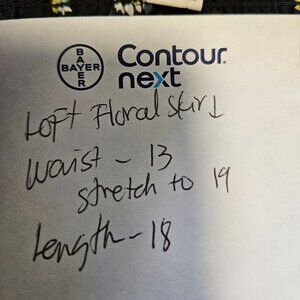 BAYER
BAYER
Contour
next
Loft Floral Skirt
Waist - 13
stretch to 19
Length - 18